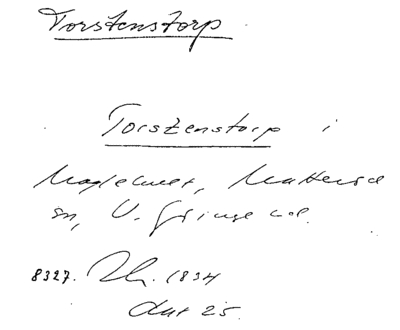 Torstenstorp
Torstenstorp i
Maglehult, Matteröd
sn, V. Göinge hd.
8327. 1834
Akt 25.